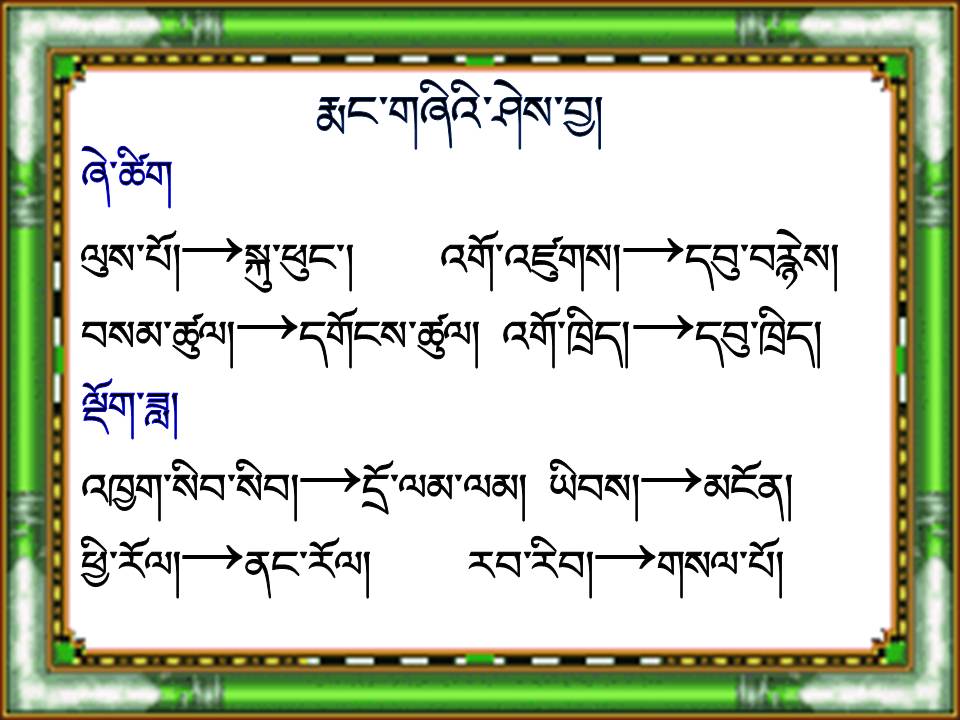 རྨང་གཞིའི་ཤེས་བྱ།
ཞེ་ཚིག
ལུས་པོ།→སྐུ་ཕུང་། འགོ་འཛུགས།→དབུ་བརྙེས།
བསམ་ཚུལ།→དགོངས་ཚུལ། འགོ་ཁྲིད།→དབུ་ཁྲིད།
ལྡོག་ཟླ།
འཁྱག་སིབ་སིབ།→དྲོ་ལམ་ལམ། ཡིབས།→མངོན།
ཕྱི་རོལ།→ནང་རོལ། རབ་རིབ།→གསལ་པོ།